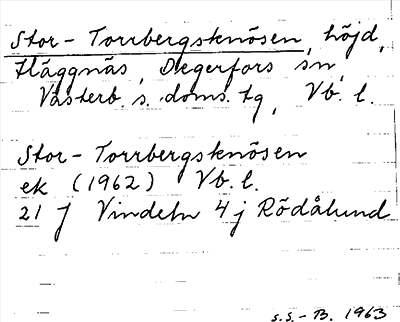 Stor-Torrbergsknösen, höjd,
Häggnäs, Degerfors sn,
Västerb. s. doms. tg, Vb. l.
Stor-Torrbergsknösen
ek (1962) Vb. l.
21 J Vindeln 4 j Rödålund
S.S.-B. 1963